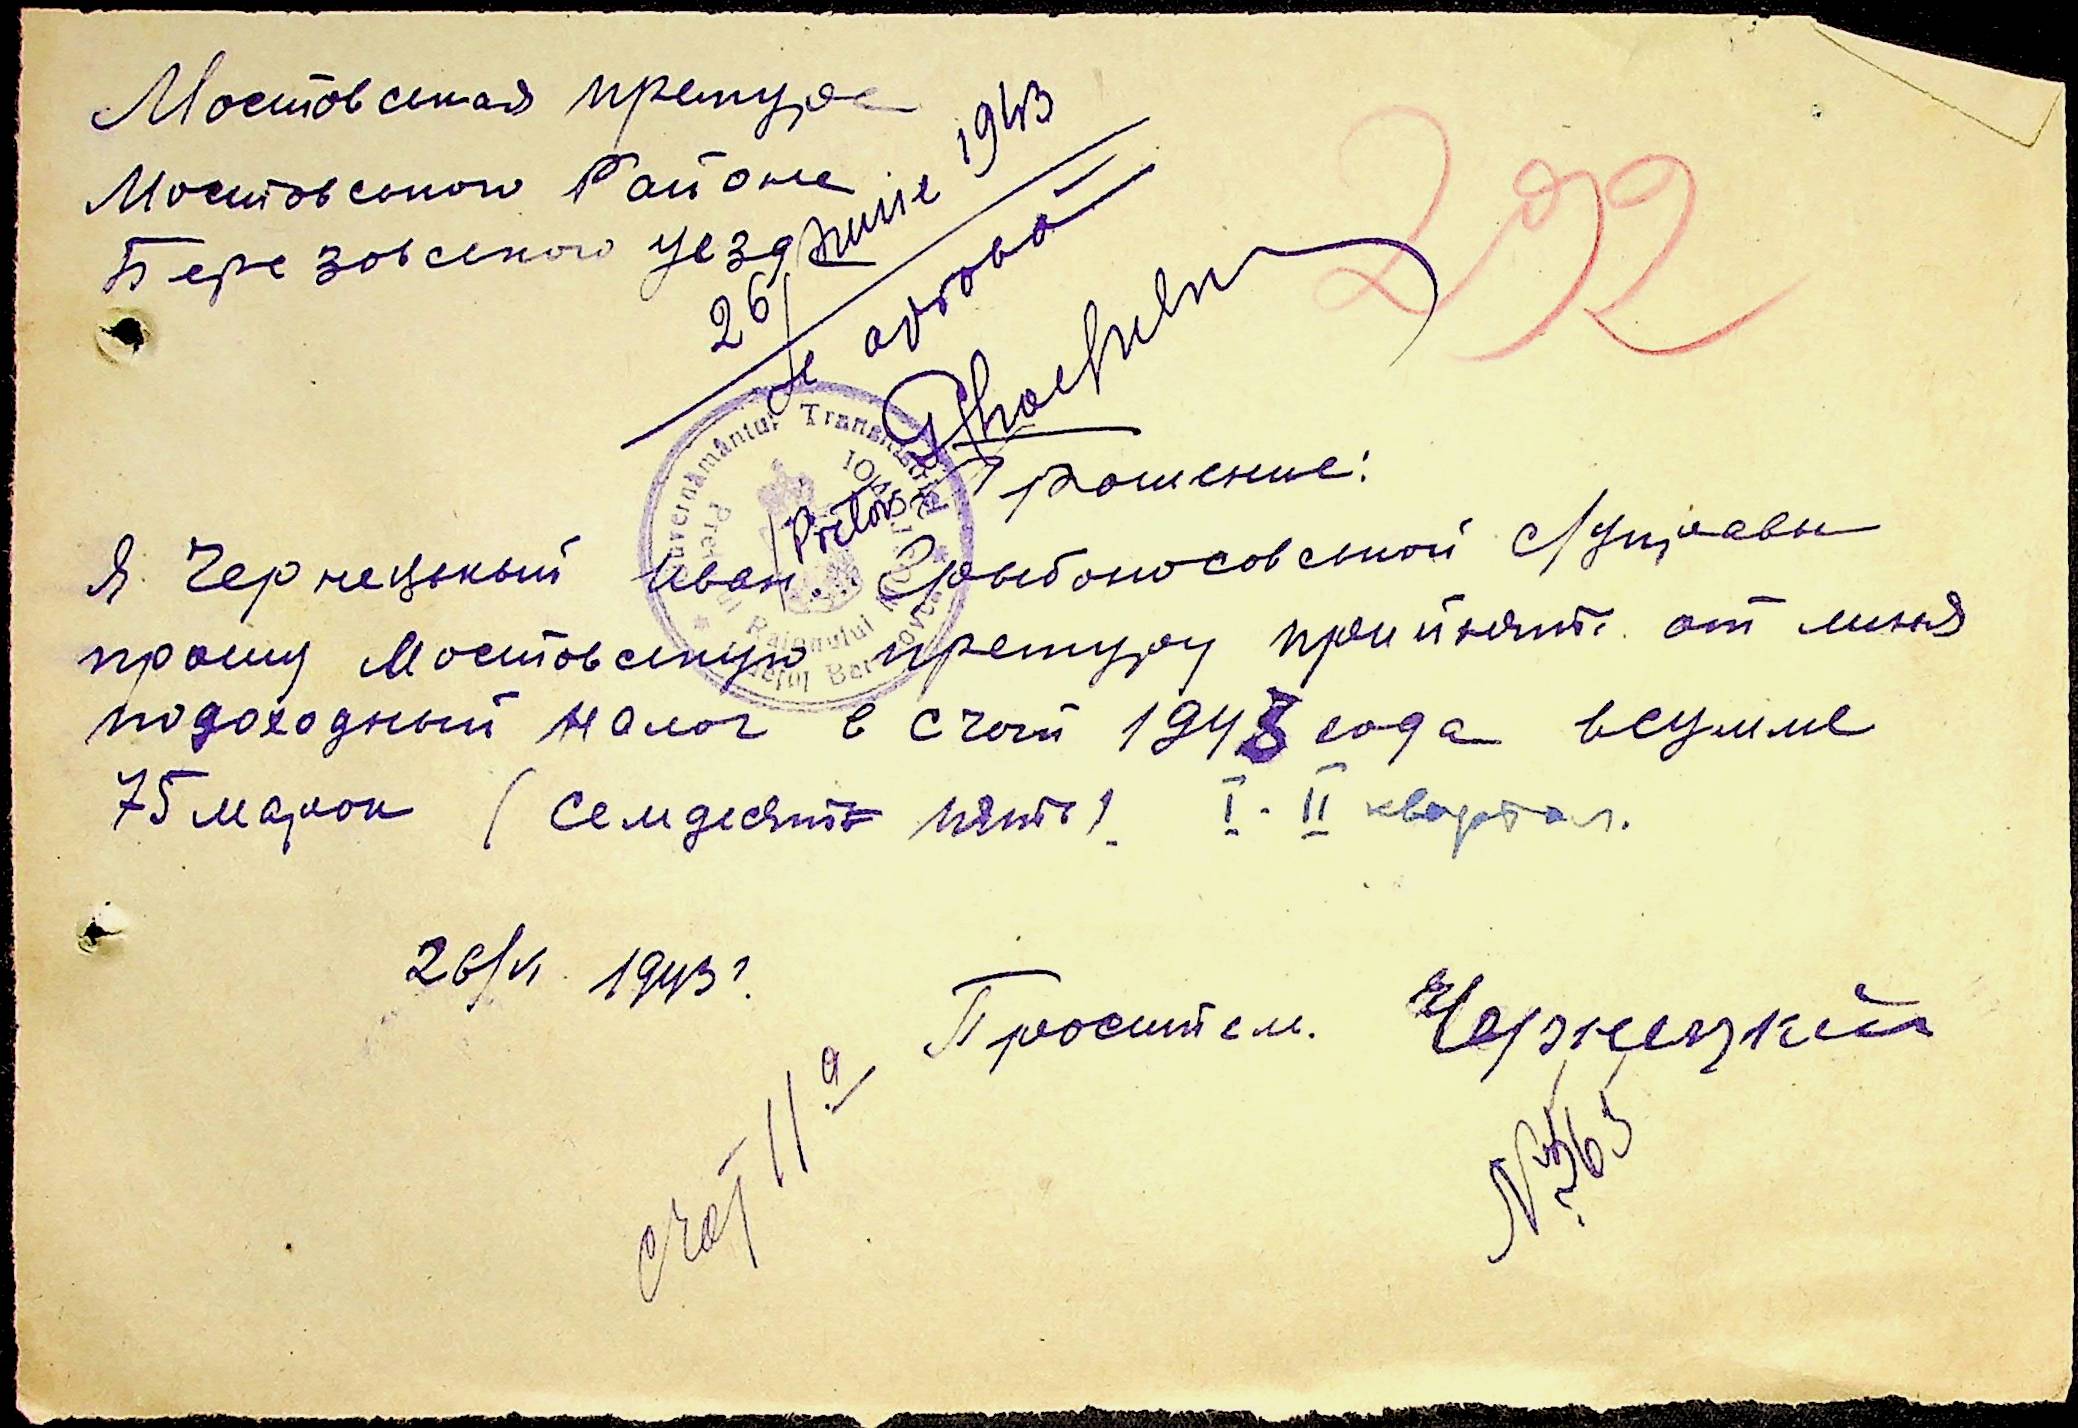 Мостовская претура
Мостовського Района
Березовского уезда
26 iunie 1943
Se aprobă
292
Pretor
Guvernământul Transnistriei
Pretura Raionului Mostovoi
Județul Berezovca
Прошение:
Я Чернецький Иван Грыбоносовськой с/управы
прошу Мостовскую претуру прийнять от миня
подоходный налог в счот 1943 года всумме
75 марок (семдесять пять) I-II квартал.
26/VI 1943 г.
Проситель. Чернецкий
счот 11а
№